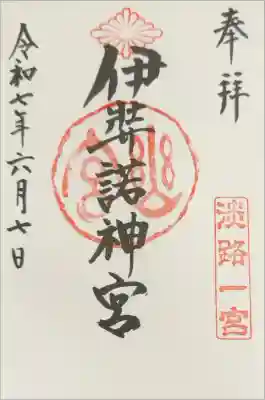 奉拝
淡路一宮
伊弉諾神宮
令和七年六月七日